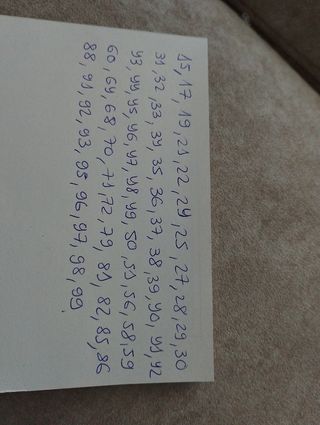 15, 17, 19, 21, 22, 24, 25, 27, 28, 29, 30
31, 32, 33, 34, 35, 36, 37, 38, 39, 40, 41, 42
43, 44, 45, 46, 47, 48, 49, 50, 51, 56, 58, 59
60, 64, 68, 70, 71, 72, 79, 81, 82, 85, 86
88, 91, 92, 93, 95, 96, 97, 98, 99.